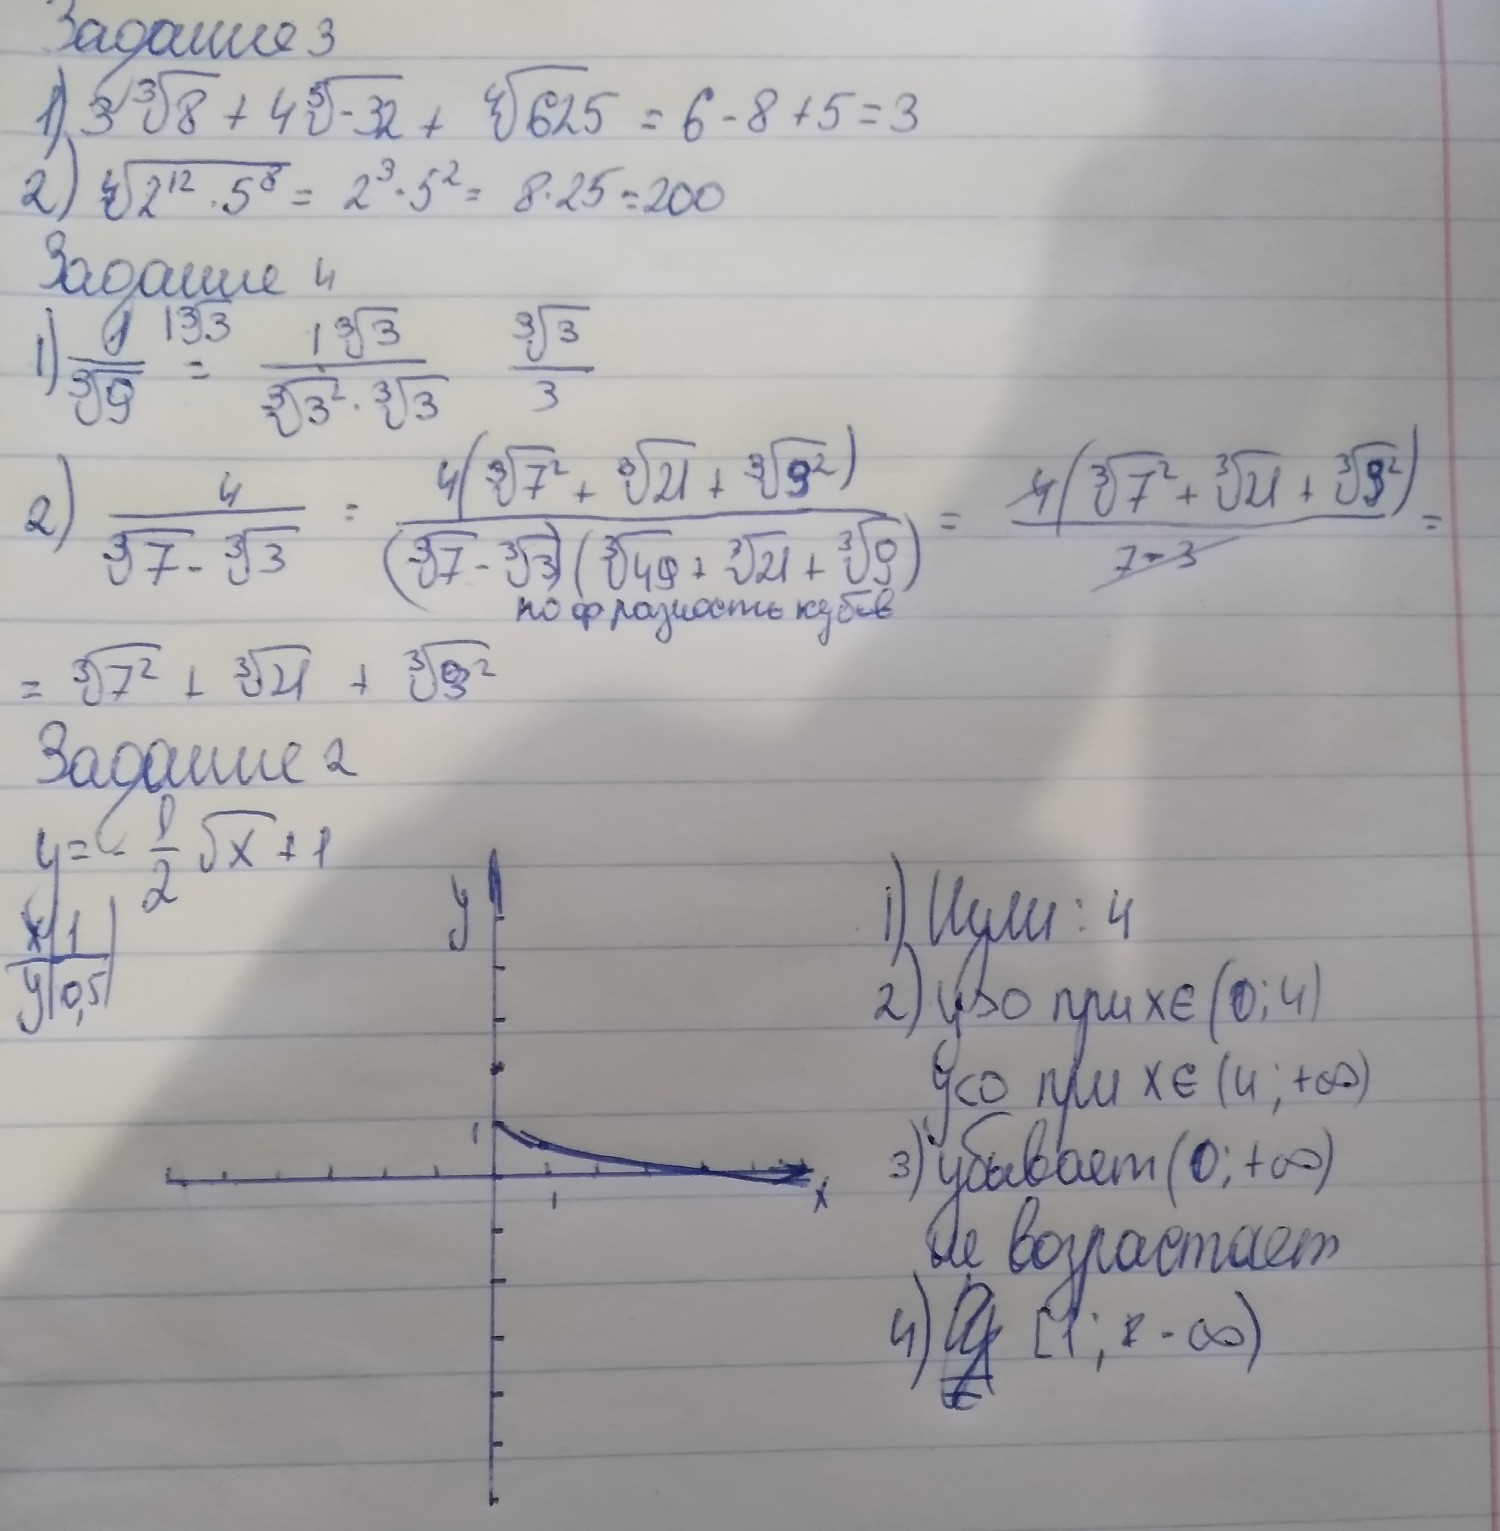 Задание 3
1) 3∛8 + 4⁵√-32 + ⁴√625 = 6 - 8 + 5 = 3
2) ⁴√2¹² · 5⁸ = 2³ · 5² = 8 · 25 = 200
Задание 4
1) 1/∛9 1∛3 = 1∛3/∛3² · ∛3 ∛3/3
2) 4/∛7 - ∛3 = 4(∛7² + ∛21 + ∛3²)/(∛7 - ∛3)(∛49 + ∛21 + ∛9) = 4(∛7² + ∛21 + ∛3²)/7-3 =
по ф разность кубов
= ∛7² + ∛21 + ∛3²
Задание 2
y = - 1/2 √x + 1
x 1
y 0,5
y
1
1
x
1) Нули: 4
2) y>0 при x∈(0; 4)
y<0 при x∈(4; +∞)
3) убывает (0; +∞)
не возрастает
4) [1; -∞)